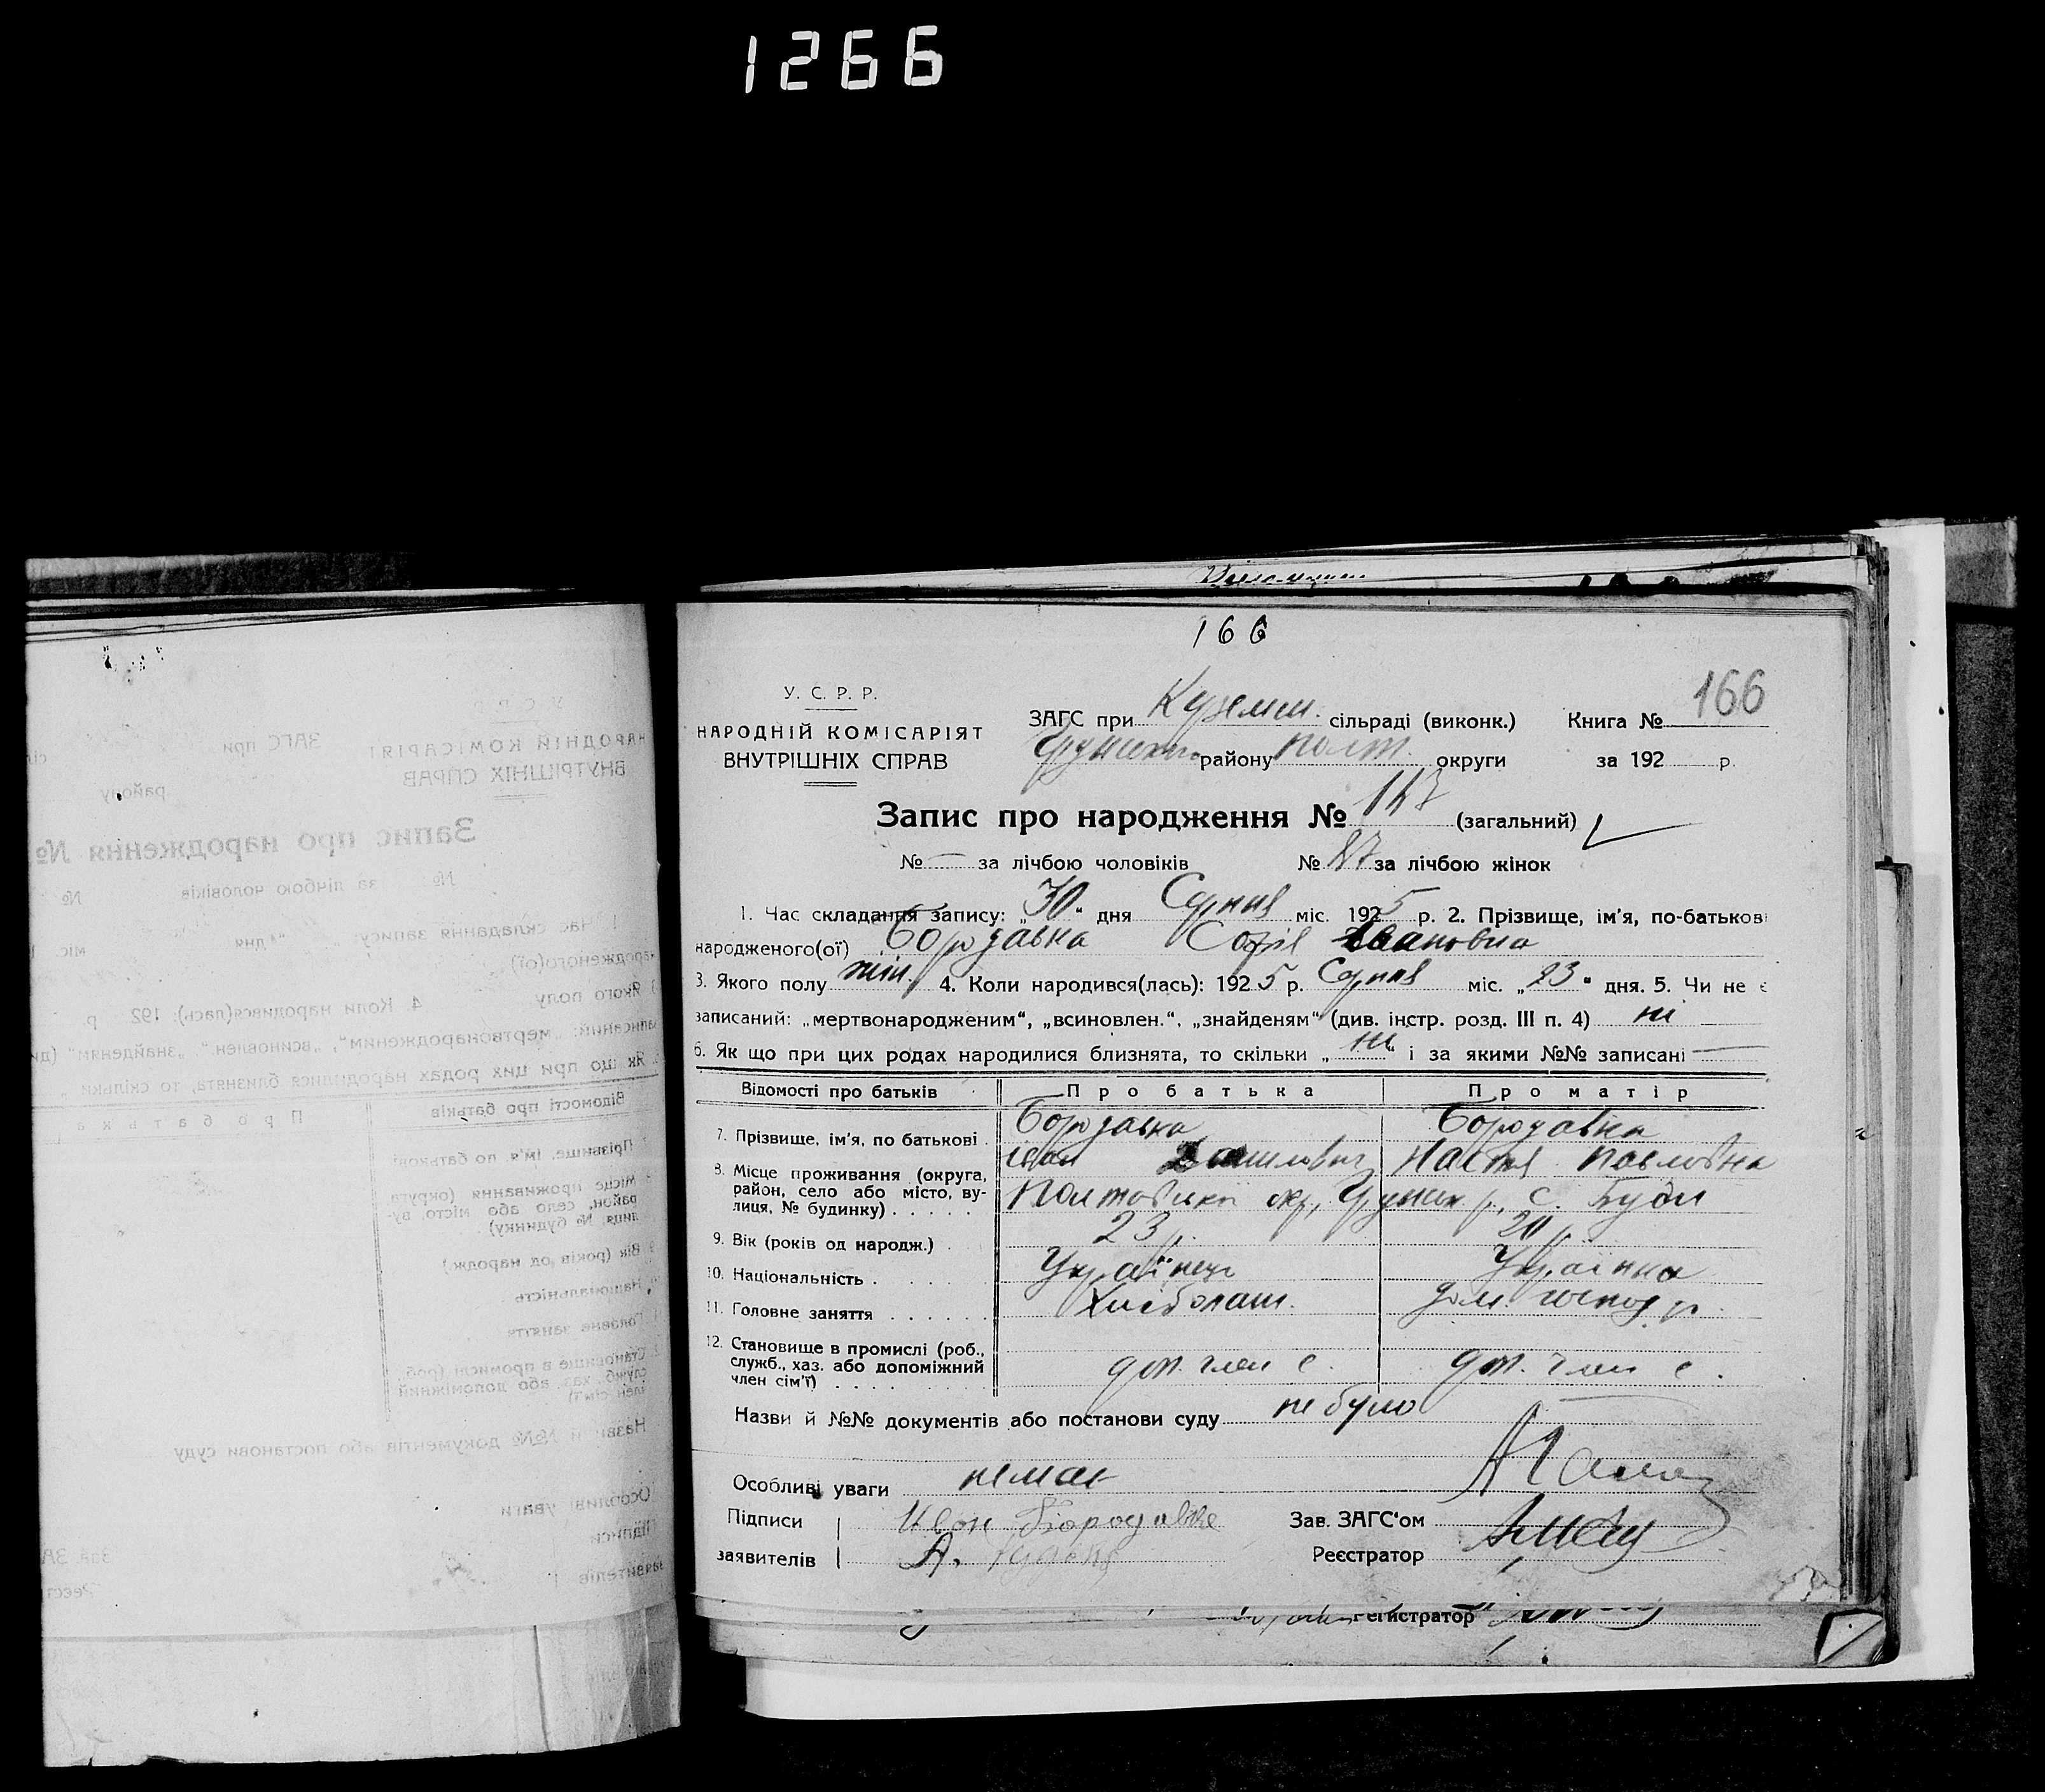 1266
166
166
У. С. Р. Р.
НАРОДНІЙ КОМІСАРІЯТ
ВНУТРІШНІХ СПРАВ
ЗАГС при Куземи. сільраді (виконк.) Книга №
району Полт. округи за 192 р.
Запис про народження № 147 (загальний)
№ — за лічбою чоловіків № 87 за лічбою жінок
1. Час складання запису: „30“ дня Серпня міс. 1925 р. 2. Прізвище, ім'я, по-батькові
народженого(ої) Бородавка Софія Івановна
3. Якого полу жін. 4. Коли народився(лась): 1925 р. Серпня міс. „23“ дня. 5. Чи не є
записаний: „мертвонародженим“, „всиновлен.“, „знайденям“ (див. інстр. розд. III п. 4) ні
6. Як що при цих родах народилися близнята, то скільки „ні“ і за якими №№ записані —
Відомості про батьків Про батька Про матір
7. Прізвище, ім'я, по батькові Бородавка Бородавка
Іван Данилович Настя Павловна
8. Місце проживання (округа, район, село або місто, вулиця, № будинку) Полтавської окр., Грунськ р., с. Буди
9. Вік (років од народж.) 23 р. 20 р.
10. Національність Українець Українка
11. Головне заняття Хлібопаш. дом. господ р.
12. Становище в промислі (роб., служб., хаз. або допоміжний член сім'ї) доп. член с. доп. член с.
Назви й №№ документів або постанови суду не було
Особливі уваги немає
Підписи Иван Бородавка Зав. ЗАГС'ом
заявителів А. Реєстратор
Регистратор